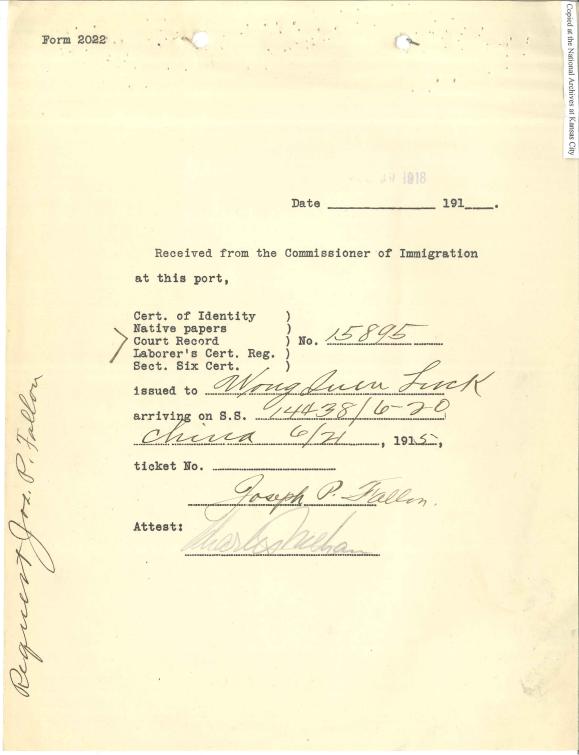 Form 2022
Copied at the National Archives at Kansas City
1918
Date ____________ 191___.
Received from the Commissioner of Immigration
at this port,
Cert. of Identity )
Native papers )
Court Record ) No. 15895
Laborer's Cert. Reg. )
Sect. Six Cert. )
issued to Wong Suen Luck
arriving on S.S. 14438/6-20
China 6/21, 1915,
ticket No.
Joseph P. Fallon.
Attest: Charles Mehan
Request Jos. P. Fallon